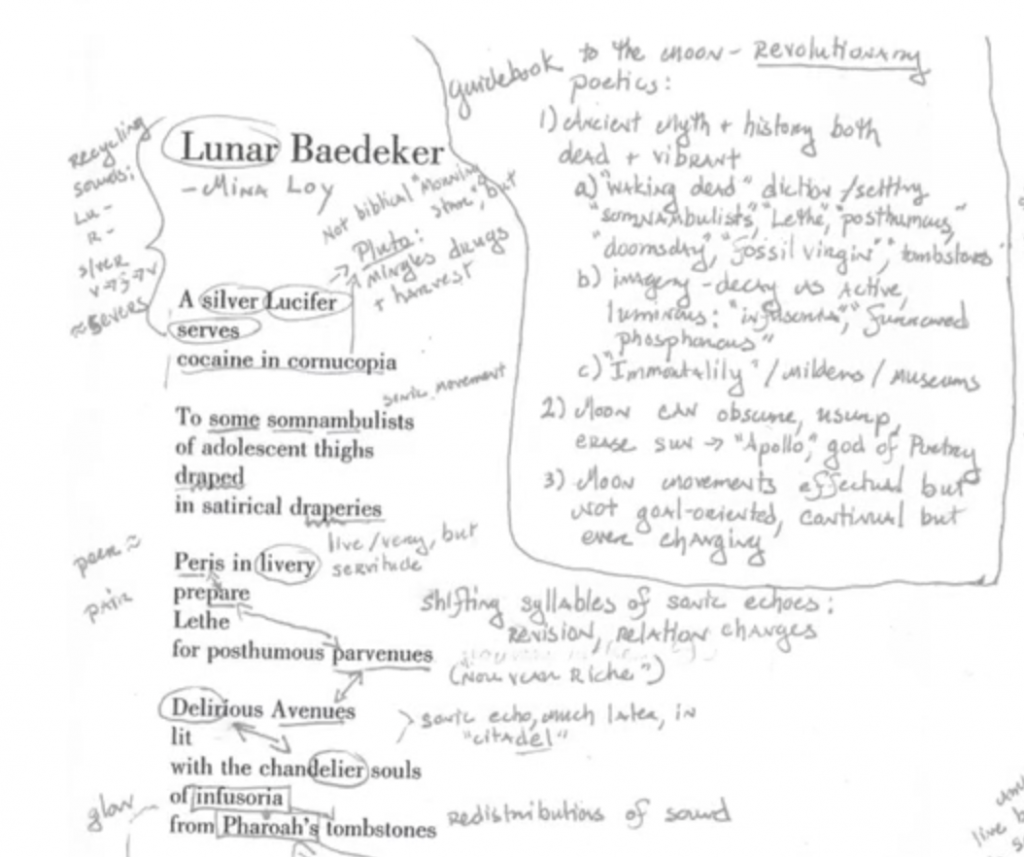 guidebook to the moon - Revolutionary
poetics:
1) Ancient myth + history both
dead + vibrant
a) "waking dead" diction/setting
"somnambulists," "Lethe," "posthumous,"
"doomsday," "fossil virgin", "tombstones"
b) imagery - decay as active,
luminous: "infusoria", "
phosphorous"
c) "Immortality"/mildews/museums
2) Moon can obscure, usurp,
erase sun → "Apollo," god of Poetry
3) Moon movements effectual but
not goal-oriented, continual but
ever changing
Recycling
sounds:
Lu -
R -
s/ver
≈ severs
Lunar Baedeker
- Mina Loy
Not biblical "Morning
star," but
→ Pluto:
mingles drugs
+ harvest
A silver Lucifer
serves
cocaine in cornucopia
sonic movement
To some somnambulists
of adolescent thighs
draped
in satirical draperies
peer ≈
pair
Peris in livery
live/very, but
servitude
prepare
Lethe
for posthumous parvenues
shifting syllables of sonic echoes:
revision, relation changes
("Nouveau Riche")
Delirious Avenues
lit
with the chandelier souls
of infusoria
from Pharoah's tombstones
sonic echo, much later, in
"citadel"
glow
Redistributions of sound
live b